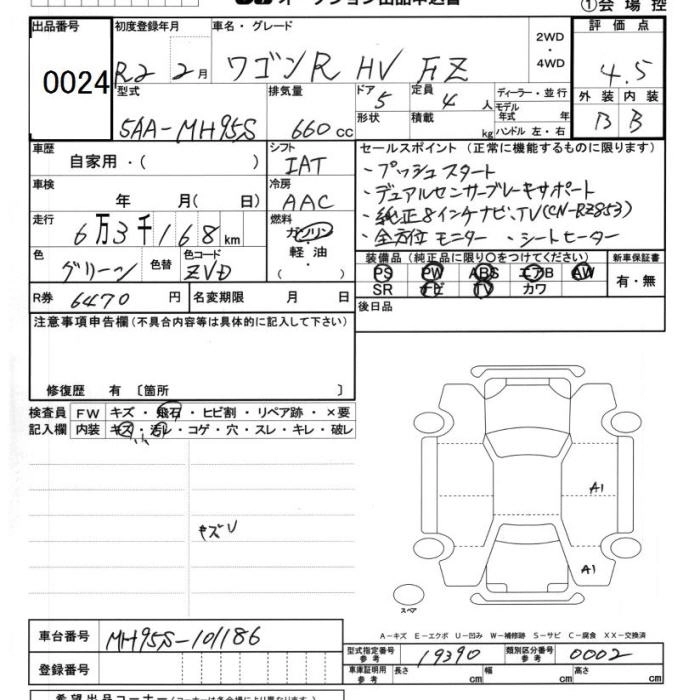 ①会場控
出品番号 0024
初度登録年月 R2 2月
車名・グレード ワゴンR HV FZ
2WD・4WD
評価点 4.5
外装 B 内装 B
型式 5AA-MH95S
排気量 660cc
ドア 5
形状
定員 4人
積載 kg
ディーラー・並行
モデル年式 年
ハンドル 左・右
車歴 自家用・( )
車検 年 月( 日)
走行 6万3千168km
色 グリーン
色替
色コード ZVD
シフト IAT
冷房 AAC
燃料 ガソリン・軽油・( )
R券 6470円
名変期限 月 日
セールスポイント(正常に機能するものに限ります)
・プッシュスタート
・デュアルセンサーブレーキサポート
・純正8インチナビ、TV(CN-RZ853)
・全方位モニター ・シートヒーター
装備品(純正品に限り○をつけてください)
PS PW ABS エアB AW
SR ナビ TV カワ
新車保証書 有・無
後日品
注意事項申告欄(不具合内容等は具体的に記入して下さい)
修復歴 有〔箇所 〕
検査員記入欄
FW キズ・飛石・ヒビ割・リペア跡・×要
内装 キズ・汚レ・コゲ・穴・スレ・キレ・破レ
キズU
A1
A1
スペア
A-キズ E-エクボ U-凹み W-補修跡 S-サビ C-腐食 XX-交換済
車台番号 MH95S-101186
登録番号
型式指定番号参考 19390
類別区分番号参考 0002
車庫証明用参考 長さ cm 幅 cm 高さ cm
希望出品コーナー